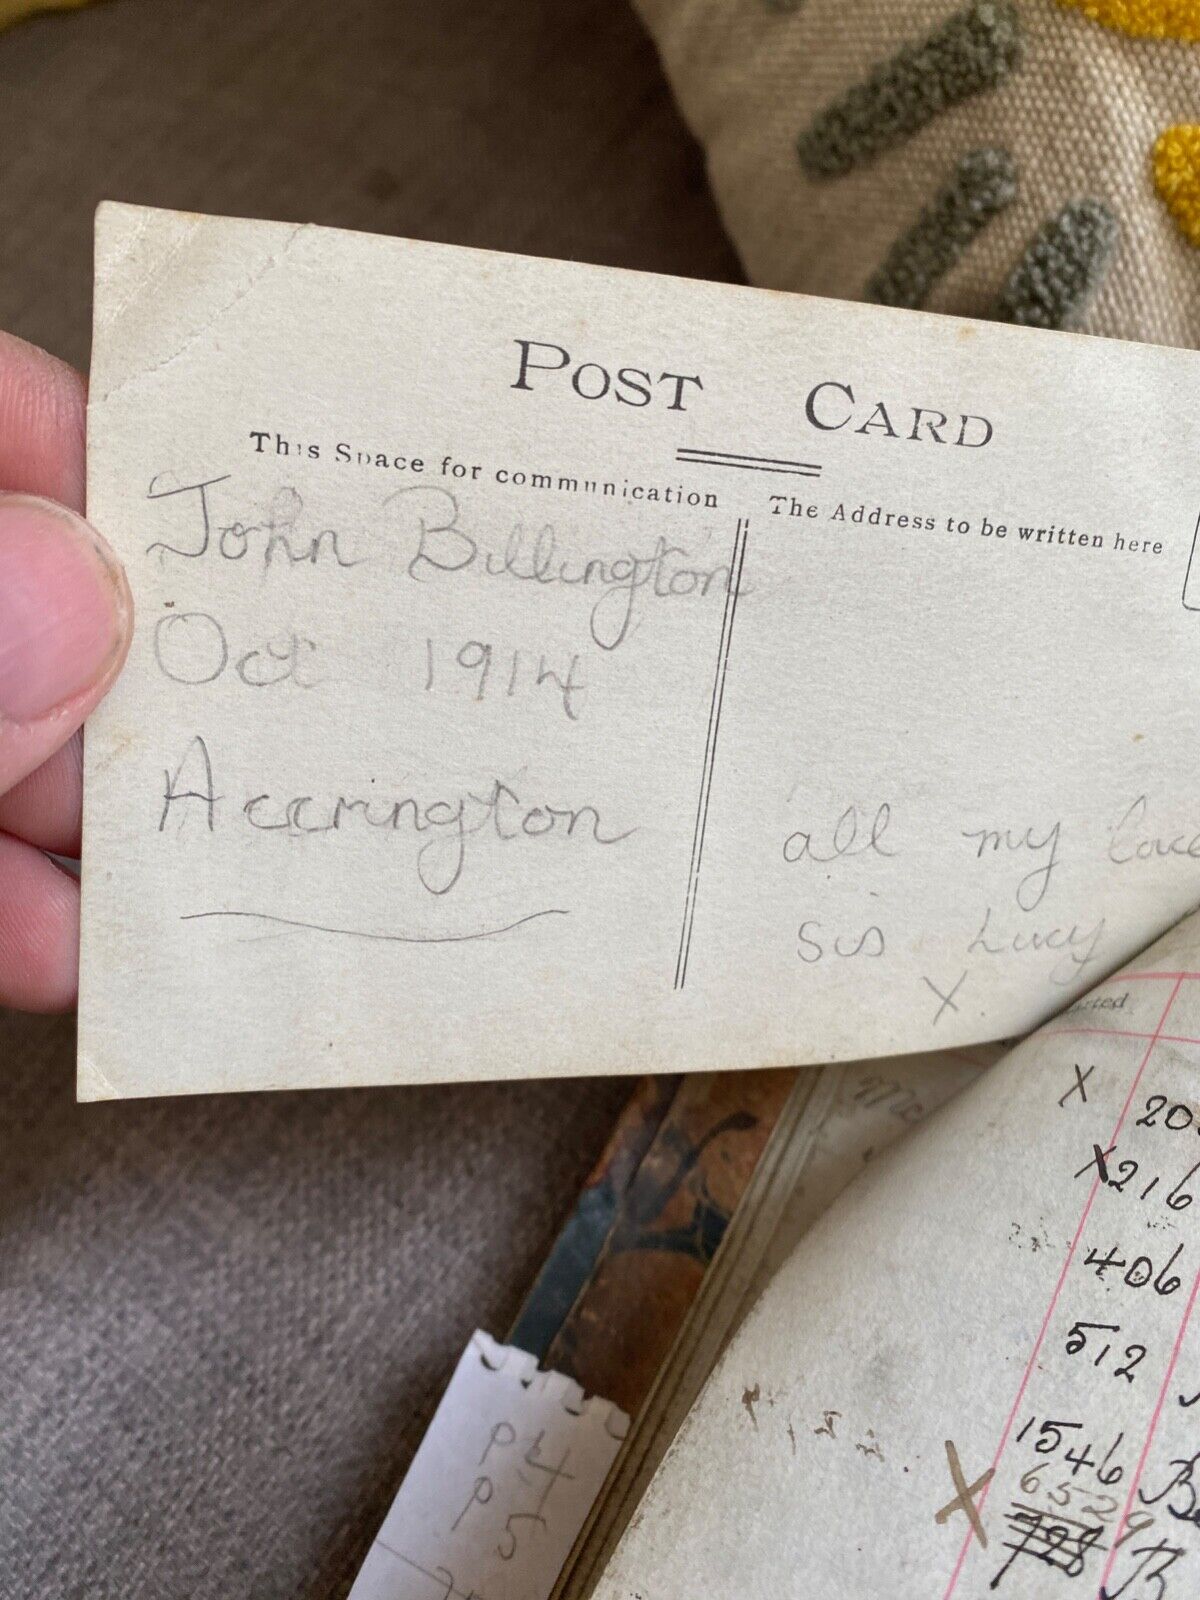 POST CARD
This Space for communication
The Address to be written here
John Billington
Oct 1914
Accrington
all my love
sis Lucy
X
X
X 216
406
512
1546
X 6529
728
P4
P5